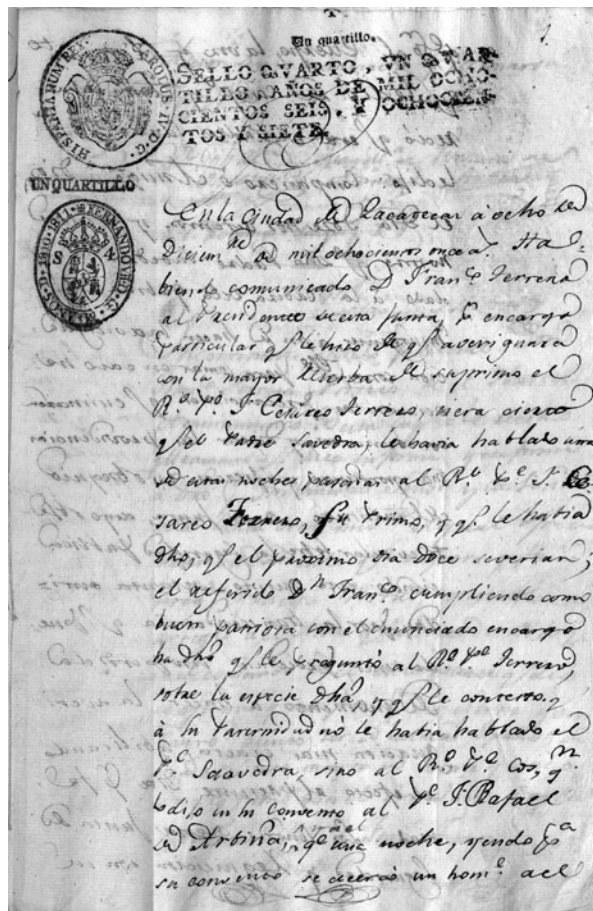 Un quartillo.
SELLO QVARTO, UN QVAR-
TILLO, AÑOS DE MIL OCHO-
CIENTOS SEIS, Y OCHOCIEN-
TOS Y SIETE.
HISPANIARUM REX CAROLUS IV D. G.
UN QUARTILLO
FERNANDO VII D. G.
S 4
En la Ciudad de Zacatecas à ocho de
Diciem.re de mil ochocientos once a.s Ha-
biendo comunicado D. Fran.co Terrena
al Presidente de esta Junta, el encargo
particular q.e le hizo de q.e averiguara
con la mayor reserba de su primo el
R.o P.e F. Cesareo Terrero, si era cierto
q.e el Padre Savedra, le havia hablado una
de estas noches, pasadas al R.o P.e F. Ce-
sareo Terrero, su Primo, y q.e le habia
dho, q.e el proximo dia doce se verian;
el referido D.n Fran.co cumpliendo como
buen patriota con el enunciado encargo
ha dho q.e le preguntó al R.o P.e Terrero,
sobre la especie dha, y q.e le contesto q.e
à su Paternidad no le habia hablado el
P.e Saavedra, sino al R.o P.e Cos, q.n
lo dijo en su convento al P.e F. Rafael
de q.e una noche, yendo p.a
su convento se acercó un hom.e a el